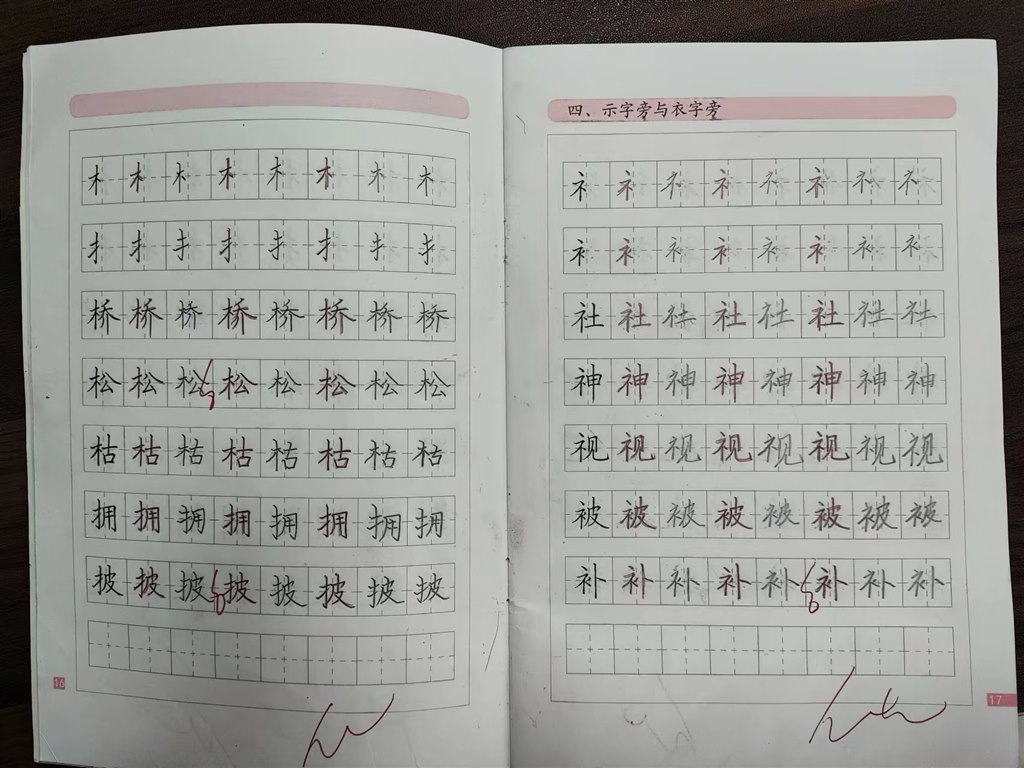 木 木 木 木 木 木 木 木
扌 扌 扌 扌 扌 扌 扌 扌
桥 桥 桥 桥 桥 桥 桥 桥
松 松 松 松 松 松 松 松
枯 枯 枯 枯 枯 枯 枯 枯
拥 拥 拥 拥 拥 拥 拥 拥
披 披 披 披 披 披 披 披
16
四、示字旁与衣字旁
礻 礻 礻 礻 礻 礻 礻 礻
衤 衤 衤 衤 衤 衤 衤 衤
社 社 社 社 社 社 社 社
神 神 神 神 神 神 神 神
视 视 视 视 视 视 视 视
被 被 被 被 被 被 被 被
补 补 补 补 补 补 补 补
17